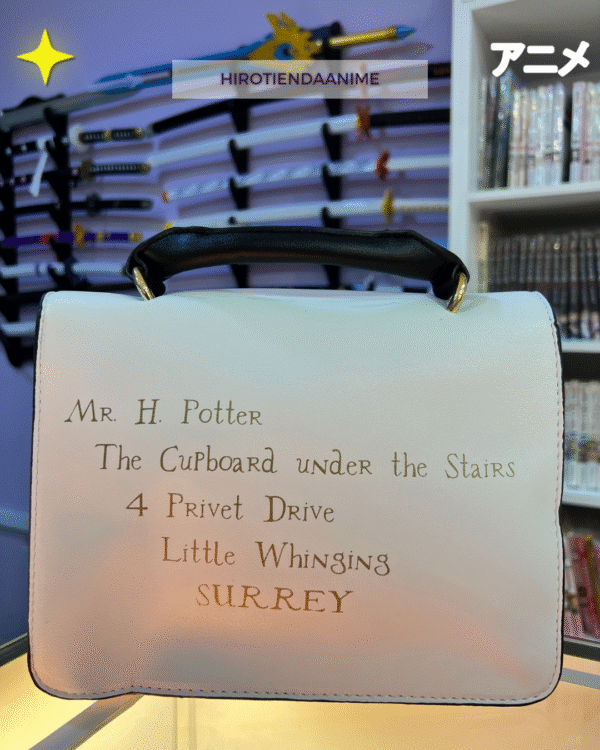 HIROTIENDAANIME
アニメ
Mr. H. Potter
The Cupboard under the Stairs
4 Privet Drive
Little Whinging
SURREY